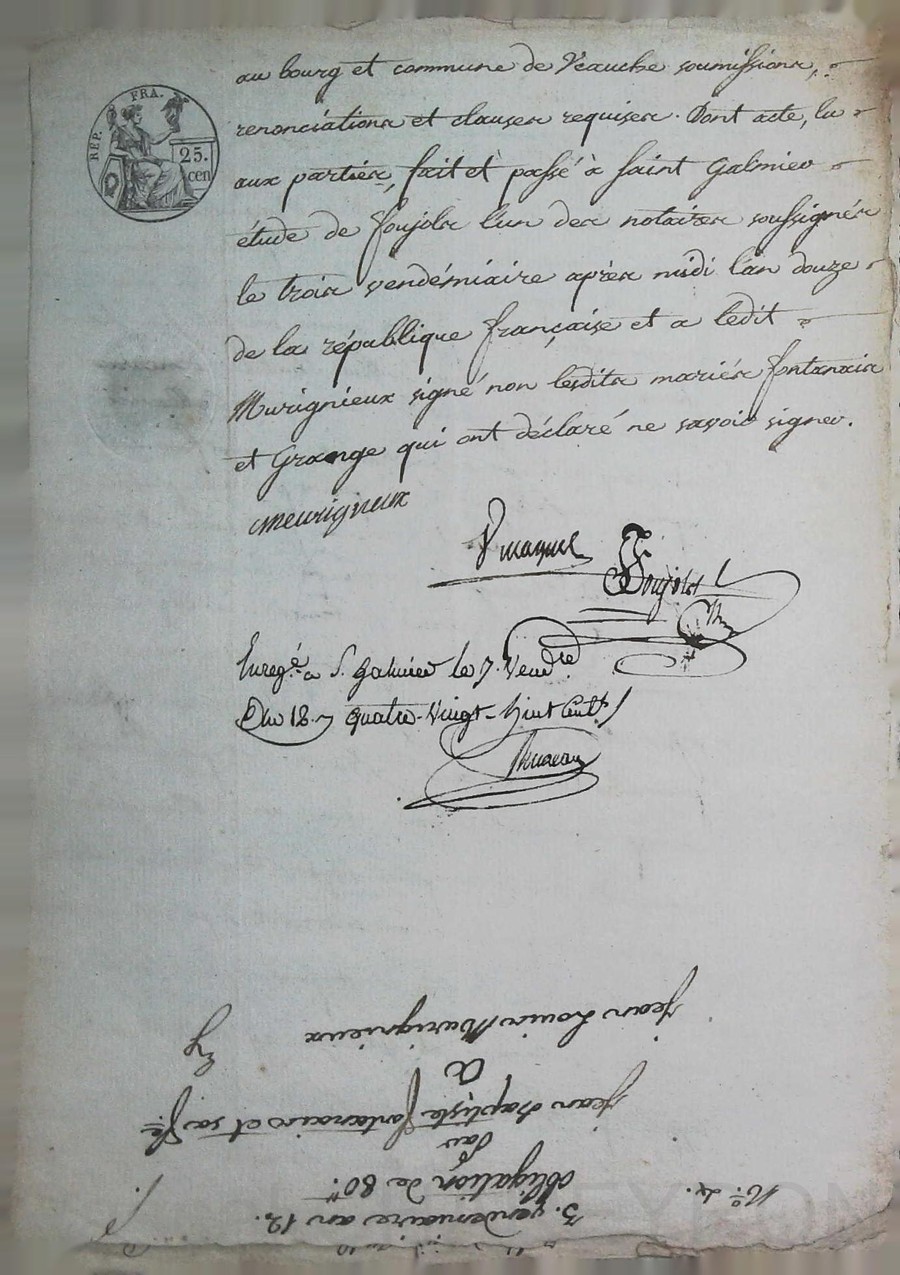 REP. FRA.
25.
cen
au bourg et commune de Veauche soumissions,
renonciations et clauses requises. Dont acte, lu
aux parties, fait et passé à Saint Galmier
étude de foujols l'un des notaires soussignés
le trois vendémiaire après midi l'an douze
de la république française et a ledit
Murignieux signé non lesdits mariés fontanais
et Grange qui ont déclaré ne savoir signer.
meurigneux
foujols
Enregé. a S. Galmier le 7. Vendre
an 12. quatre-Vingt-huit Cent.
N°. 4.
3. vendemiaire an 12.
obligation de 80.
Par
jean Baptiste fontanais et sa fe.
A
jean Louis Murignieux